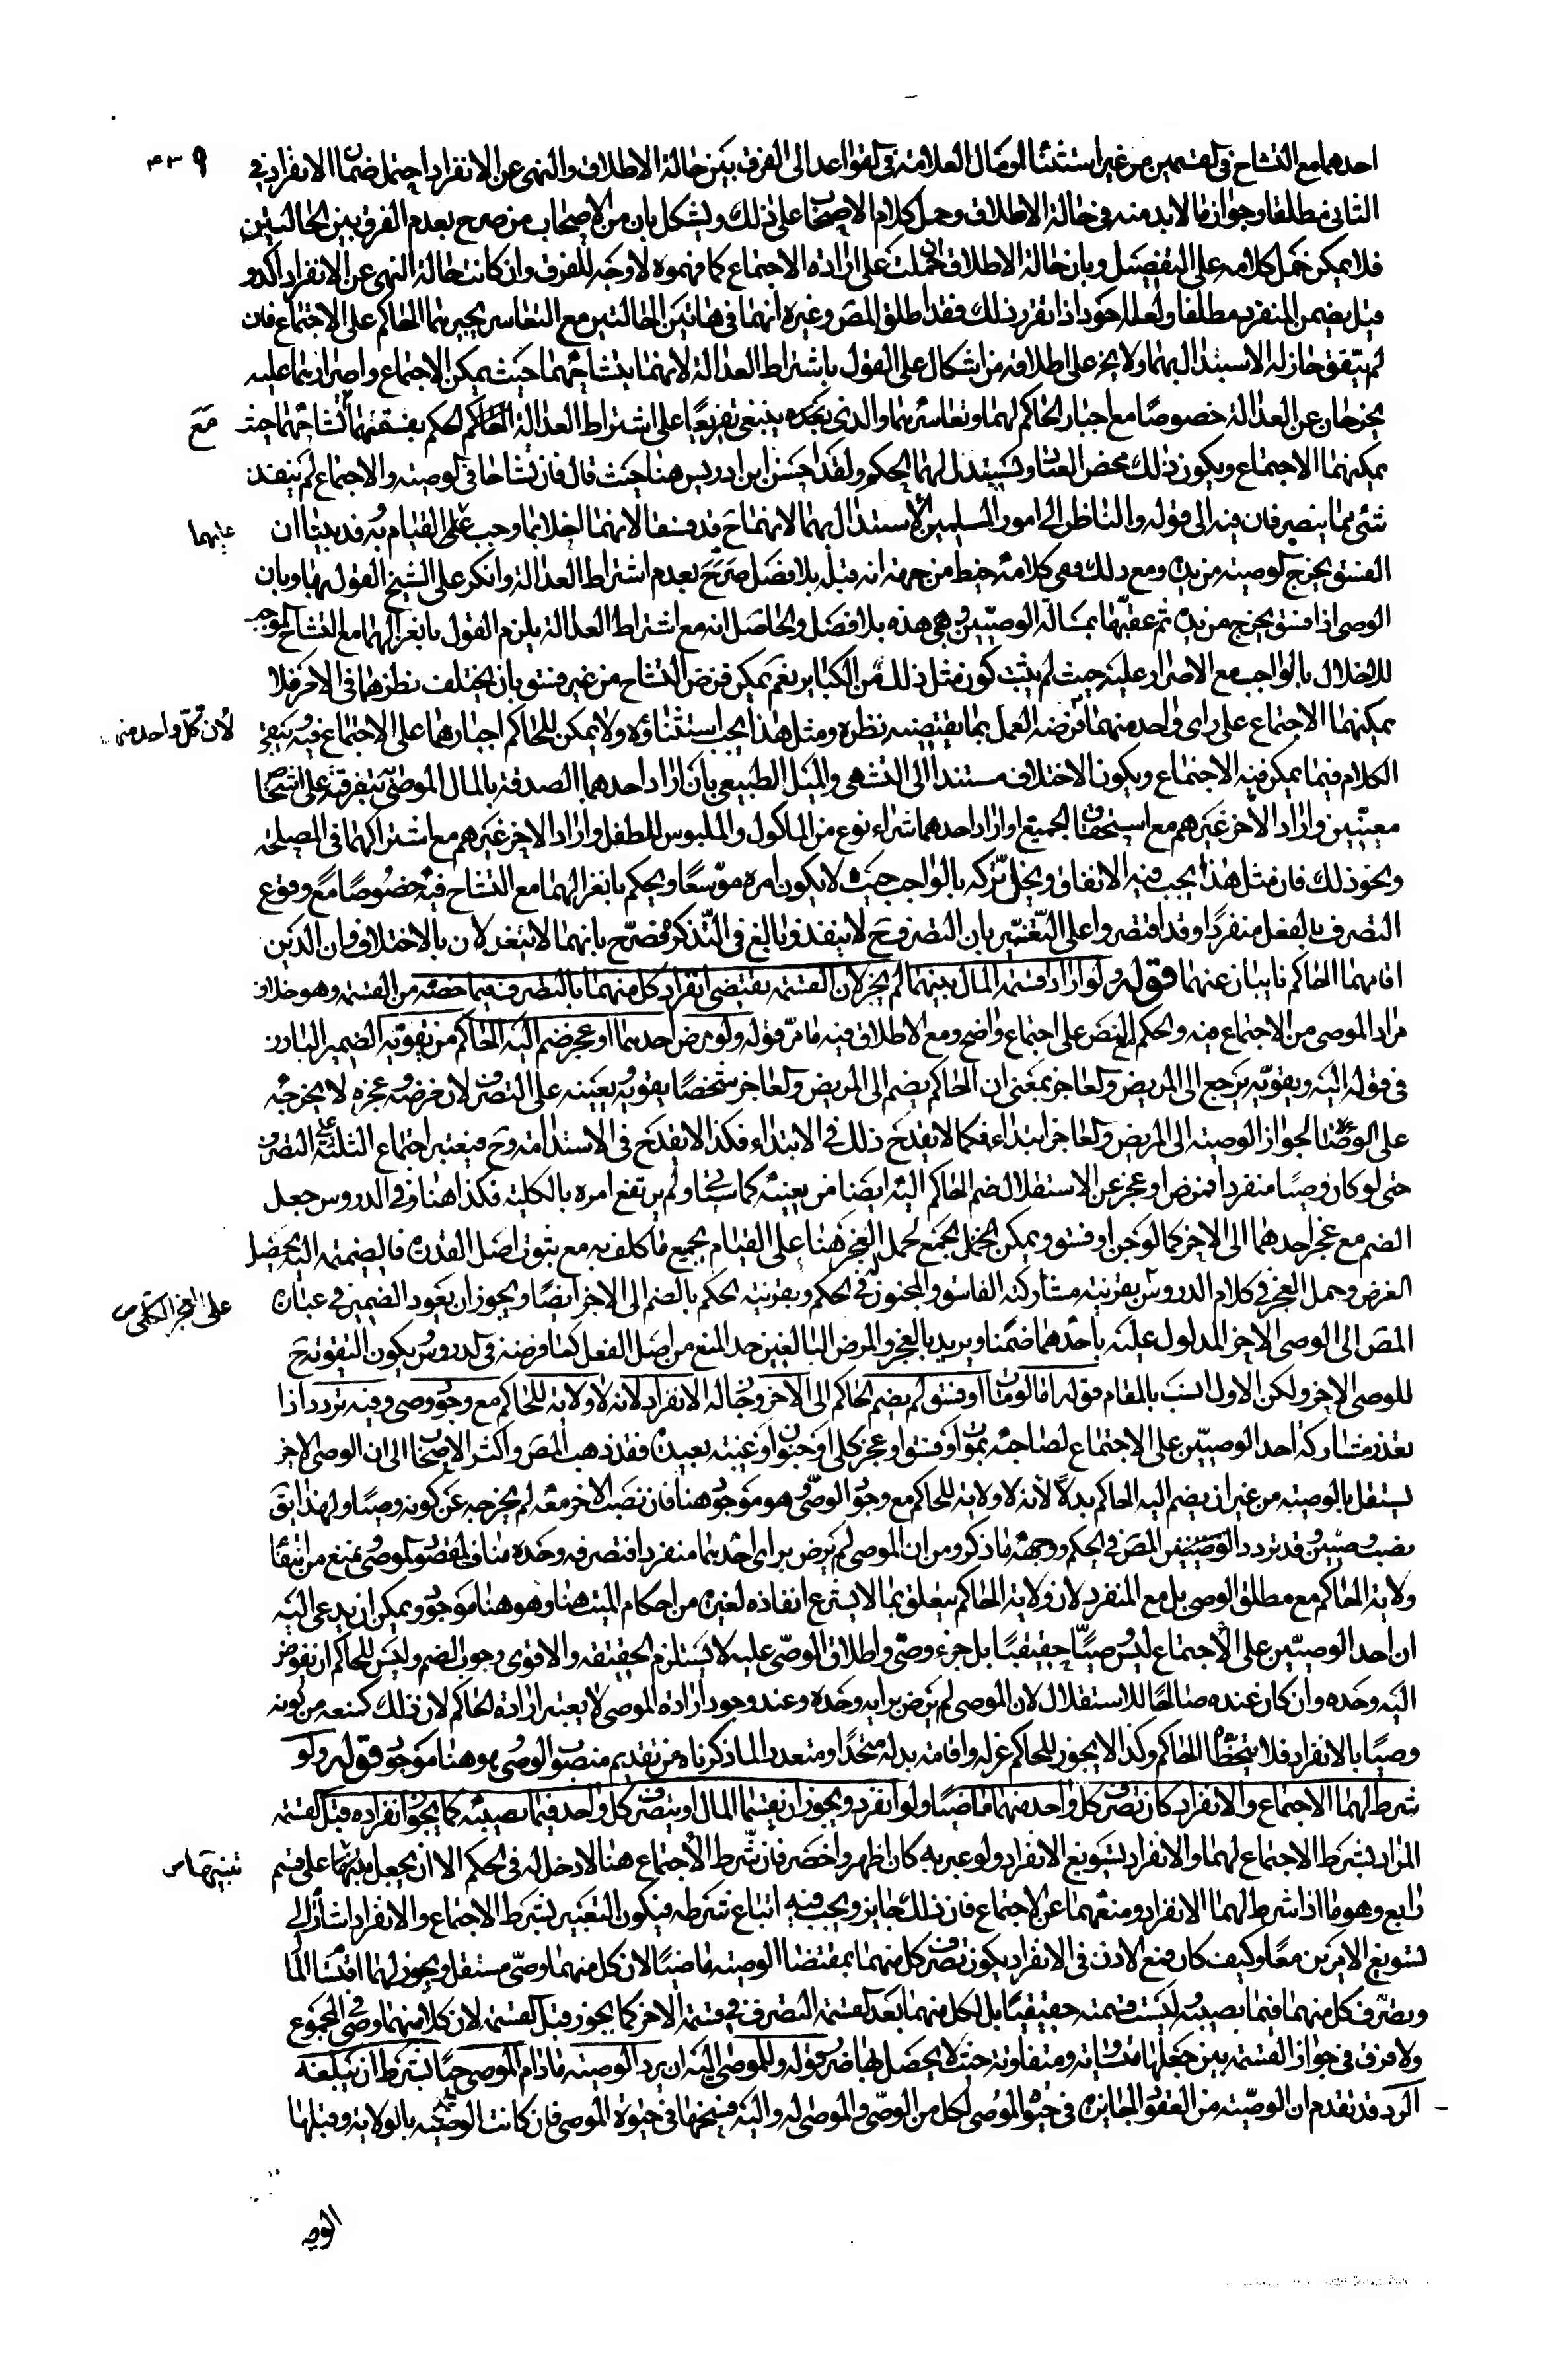 ٤٣٩
احدهما مع التشاح في القسمين من غير استثناء ومال العلامة في القواعد الى الفرق بين حالة الاطلاق والنهى عن الانفراد احتمل ضمان ما الانفراد في
الثانى مطلقا وجواز ما لابد منه في حالة الاطلاق وحمل كلام الاصحاب على ذلك ويشكل بان من الاصحاب من صرح بعدم الفرق بين الحالتين
فلا يمكن حمل كلامه على التفصيل وبان حالة الاطلاق ان حملت على ارادة الاجتماع كما فهموه لا وجه للفرق وان كانت حالة النهى عن الانفراد اكد و
قيل يضمن المنفرد مطلقا ولعله اجود اذا تقرر ذلك فقد اطلق المص وغيره انهما في هاتين الحالتين مع التعاسر يجبرهما الحاكم على الاجتماع فان
لم يتفق جاز له الاستبدال بهما ولا يخ على اطلاقه من اشكال على القول باشتراط العدالة لانهما بتشاحهما حيث يمكن الاجتماع واصرارهما عليه
يخرجان عن العدالة خصوصا مع اجبار الحاكم لهما وتعاسرهما والذى يتجه ينبغي تفريعا على اشتراط العدالة الحكم بفسقهما بتشاحهما حيث مع
يمكنهما الاجتماع ويكون ذلك محض العناد ويستبدل بهما الحكم ولقد احسن ابن ادريس هنا حيث قال فان تشاحا في الوصية والاجتماع لم ينفذ
شئ مما يتصرفان فيه الى قوله والناظر الى امور المسلمين الاستبدال بهما لانهما ح قد فسقا لانهما اخلا بما وجب على القيام به وقد بينا ان عليهما
الفسق يخرج الوصية من يده ومع ذلك ففى كلامه خبط من جهة انه قبله بلا فصل صرح بعدم اشتراط العدالة وانكر على الشيخ القول بها وبان
الوصى اذا فسق يخرج من يده ثم عقبها بمسالة الوصيين وهي هذه بلا فصل والحاصل انه مع اشتراط العدالة يلزم القول بانعزالهما مع التشاح الموجب
للاخلال بالواجب مع الاصرار عليه حيث لم يثبت كون مثل ذلك من الكبائر نعم يمكن فرض التشاح من غير فسق بان يختلف نظرهما في الامر فلا
يمكنهما الاجتماع على راى واحد منهما فرضه العمل بما يقتضيه نظره ومثل هذا يجب استثناؤه ولا يمكن للحاكم اجبارهما على الاجتماع فيه يبقى لأن كل واحد منهـ
الكلام فيما يمكن فيه الاجتماع ويكون الاختلاف مستندا الى التشهى والميل الطبيعى بان اراد احدهما الصدقة بالمال الموصى بتفرقته على اشخاص
معينين واراد الآخر غيرهم مع استحقاق الجميع او اراد احدهما شراء نوع من الماكول والملبوس للطفل واراد الاخر غيرهم مع اشتراكهما في المصلحة
ونحو ذلك فان مثل هذا يجب فيه الاتفاق ويخل تركه بالواجب حيث لا يكون امره موسعا ويحكم بانعزالهما مع التشاح فيه خصوصا مع وقوع
التصرف بالفعل منفردا وقد اقتصروا على التعبير بان التصرف ح لا ينفذ وبالغ في التذكرة فصرح بانهما لا ينعزلان بالاختلاف وان الذين
اقامهما الحاكم نايبان عنهما قوله ولو ارادا قسمة المال بينهما لم يجز لان القسمة يقتضى انفراد كل منهما بالتصرف فيما خصه من القسمة وهو خلاف
مراد الموصى من الاجتماع فيه والحكم مع النص على اجتماع واضح ومع الاطلاق فيه ما مر قوله ولو مرض احدهما او عجز ضم اليه الحاكم من يقويه الضمير البارز
في قوله اليه ويقويه يرجع الى المريض والعاجز بمعنى ان الحاكم يضم الى المريض والعاجز شخصا يقويه ويعينه على التصرف لان مرضه وعجزه لا يخرجه
على الوصاية لجواز الوصية الى المريض والعاجز ابتداء فكما لا يقدح ذلك في الابتداء فكذا لا يقدح في الاستدامة وح فيعتبر اجتماع الثلثة على التصرف
حتى لو كان وصيا منفردا فمرض او عجز عن الاستقلال ضم الحاكم اليه ايضا من يعينه كما سيأتي ولم يرتفع امره بالكلية فكذا هنا وفي الدروس جعل
الضم مع عجز احدهما الى الاخر كما لو جن او فسق ويمكن الجمع بحمل العجز هنا على القيام بجميع ما كلف به مع ثبوت اصل القدرة فالضميمة اليه يحصل
الغرض وحمل العجز في كلام الدروس بقرينة مشاركته الفاسق والمجنون له في الحكم وبقرينة الحكم بالضم الى الاخر ايضا ويجوز ان يعود الضمير في عبارة على العجز الكلى ص
المص الى الوصى الاخر المدلول عليه باحدهما ضمنا ويريد بالعجز والمرض البالغين حد المنع من اصل الفعل كما فرضه في الدروس ويكون التقوية ح
للوصى الاخر ولكن الاول انسب بالمقام قوله اما لو مات او فسق لم يضم الحاكم الى الآخر وجاز له الانفراد لانه لا ولاية للحاكم مع وجود وصى وفيه تردد اذا
تعذر مشاركة احد الوصيين على الاجتماع لصاحبه بموت او فسق او عجز كلى او جنون او غيبة بعيدة فقد ذهب المص واكثر الاصحاب الى ان الوصى الاخر
يستقل بالوصية من غير ان يضم اليه الحاكم بدلا لانه لا ولاية للحاكم مع وجود الوصى وهو موجود هنا فان نصب الاخر معه لم يخرجه عن كونه وصيا ولهذا يق
نصب وصيين وقد تردد المص في الحكم ووجهه ما ذكر ومن ان الموصى لم يرض براى احدهما منفردا فتصرفه وحده مناف لمقصود الموصى ويمنع من انتفاء
ولاية الحاكم مع مطلق الوصى بل مع المنفرد لان ولاية الحاكم يتعلق بما لا يشرع انفاذه لغيره من احكام الميت هنا وهو هنا موجود ويمكن ان يدعى اليه
ان احد الوصيين على الاجتماع ليس وصيا حقيقيا بل جزء وصى واطلاق الوصى عليه لا يستلزم الحقيقة والاقوى وجوب الضم وليس للحاكم ان يفوض
اليه وحده وان كان عنده صالحا للاستقلال لان الموصى لم يرض برايه وحده وعند وجود ارادة الموصى لا يعتبر ارادة الحاكم لان ذلك كمنعه من كونه
وصيا بالانفراد فلا يتخطاه الحاكم وكذا لا يجوز للحاكم عزله واقامة بدله متحدا او متعددا لما ذكرناه من تقديم منصوب الوصى وهو هنا موجود قوله ولو
شرط لهما الاجتماع والانفراد كان تصرف كل واحد منهما ماضيا ولو انفرد ويجوز ان يقتسما المال ويتصرف كل واحد فيما يصيبه كما يجوز انفراده قبل القسمة
المراد بشرط الاجتماع لهما والانفراد تسويغ الانفراد ولو عبر به كان اظهر واخصر فان شرط الاجتماع هنا لا دخل له في الحكم الا ان يجعل على قسم تنبيها ص
رابع وهو ما اذا شرط لهما الانفراد ومنعهما عن الاجتماع فان ذلك جايز ويجب فيه اتباع شرطه فيكون التعبير بشرط الاجتماع والانفراد اشارة الى
تسويغ الامرين معا وكيف كان فمع الاذن في الانفراد يكون تصرف كل منهما بمقتضى الوصية ماضيا لان كل منهما وصى مستقل ويجوز لهما اقتسام المال
ويتصرف كل منهما فيما يصيبه وليست قسمته حقيقيا بل لكل منهما بعد القسمة التصرف في قسمة الاخر كما يجوز قبل القسمة لان كلا منهما وصى في المجموع
ولا فرق في جواز القسمة بين جعلها متساوية ومتفاوتة حيث لا يحصل بها ضرر قوله وللموصى اليه ان يرد الوصية ما دام الموصى حيا بشرط ان يبلغه
الرد قد تقدم ان الوصية من العقود الجايزة في حيوة الموصى لكل من الوصى والموصى له واليه فسخها في حيوة الموصى فان كانت الوصية بالولاية وقبلها
الوصى